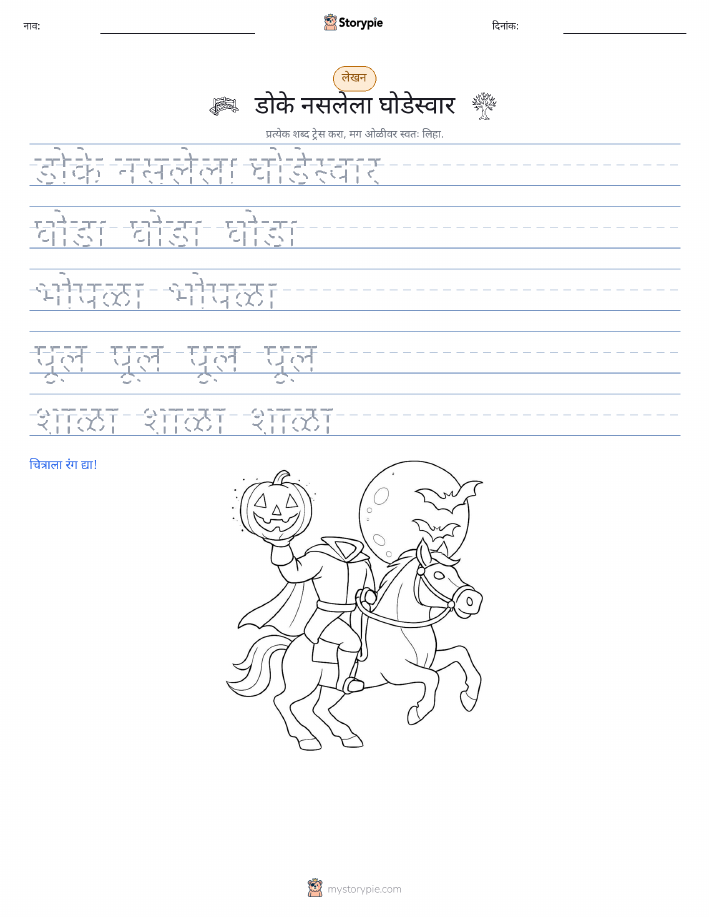 नाव:
Storypie
दिनांक:
लेखन
डोके नसलेला घोडेस्वार
प्रत्येक शब्द ट्रेस करा, मग ओळीवर स्वतः लिहा.
डोके नसलेला घोडेस्वार
घोडा घोडा घोडा
भोपळा भोपळा
पूल पूल पूल पूल
शाळा शाळा शाळा
चित्राला रंग द्या!
mystorypie.com